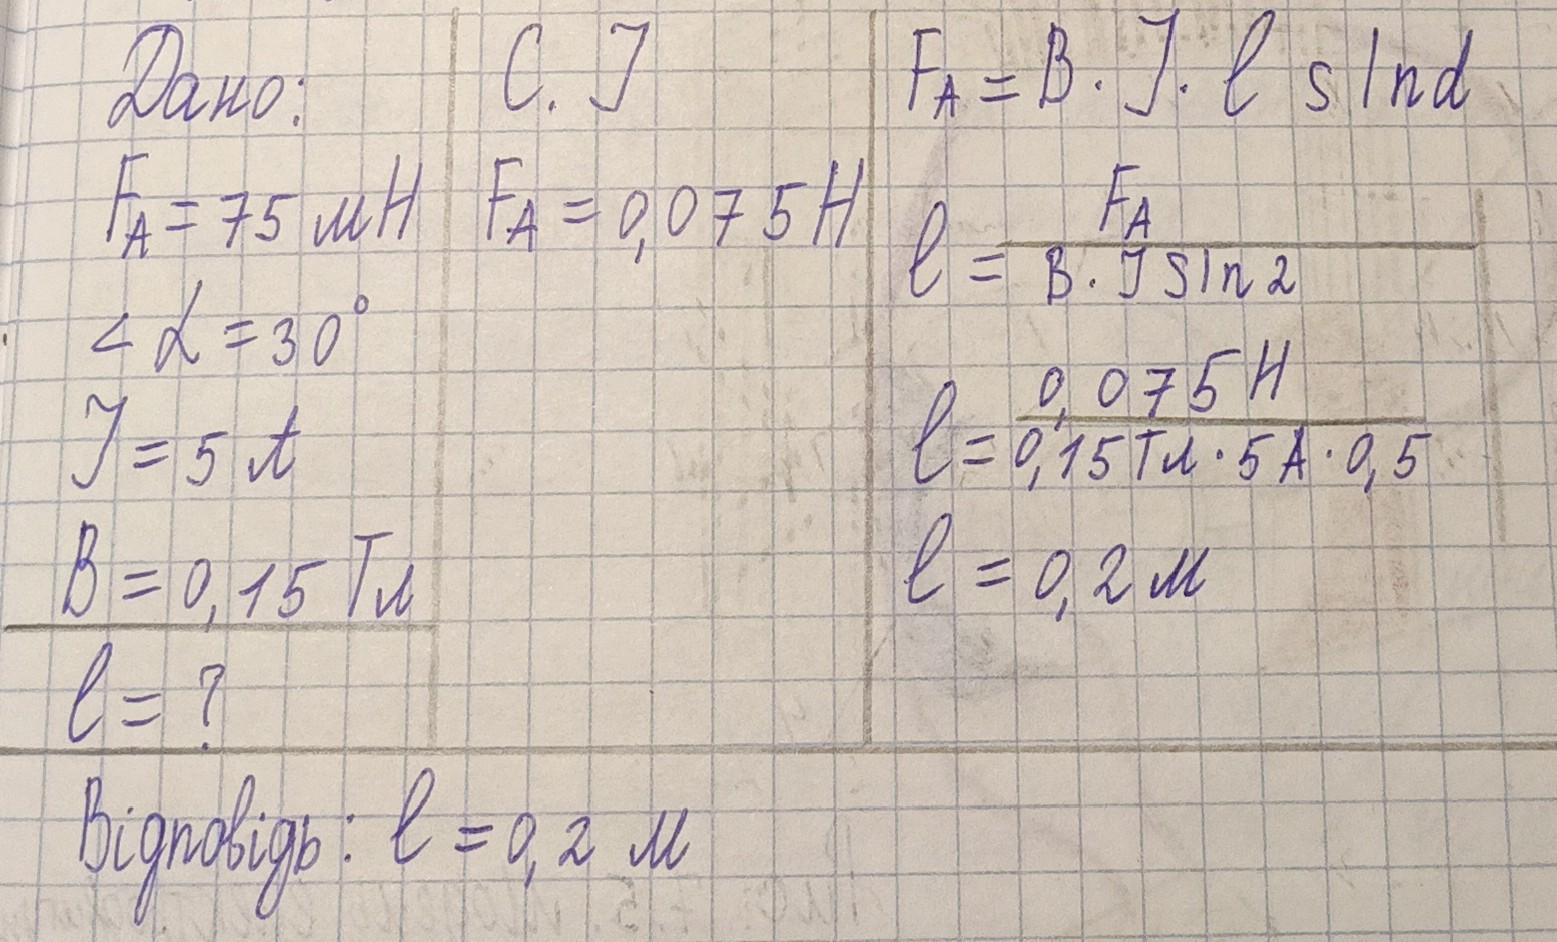 Дано:
F_A = 75 мН
< α = 30°
J = 5 A
B = 0,15 Тл
l = ?
С. J
F_A = 0,075 Н
F_A = B · J · l sin d
l = F_A / B · J sin 2
l = 0,075 Н / 0,15 Тл · 5 A · 0,5
l = 0,2 м
Відповідь: l = 0,2 м